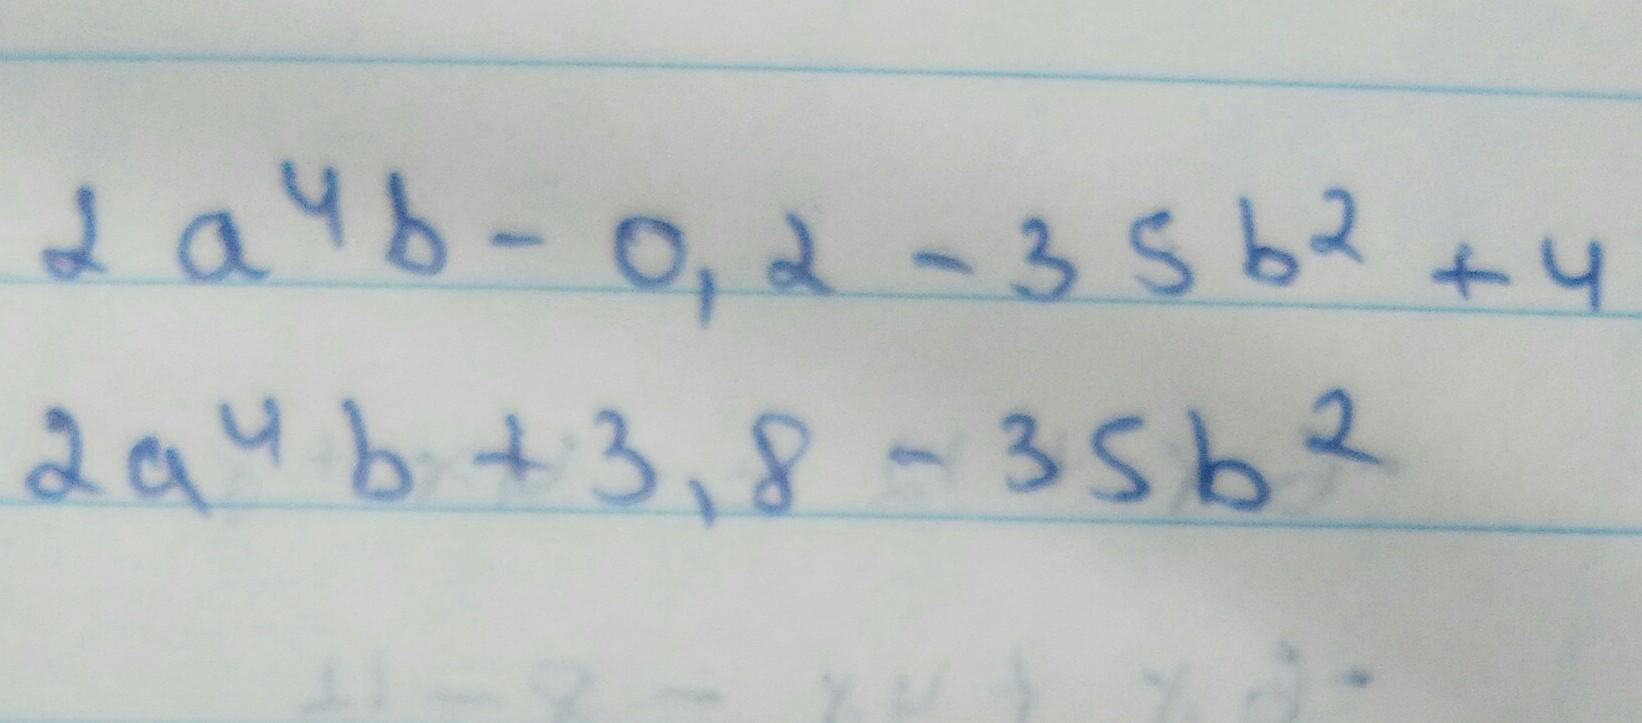 2a⁴b - 0,2 - 35b² + 4
2a⁴b + 3,8 - 35b²